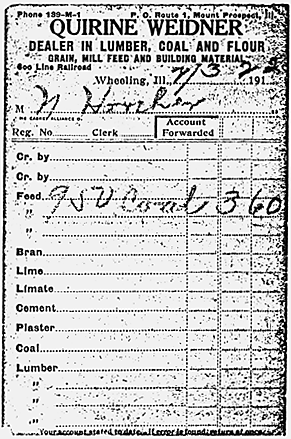 Phone 139-M-1 P. O. Route 1, Mount Prospect, Ill.
QUIRINE WEIDNER
DEALER IN LUMBER, COAL AND FLOUR
GRAIN, MILL FEED AND BUILDING MATERIAL
Soo Line Railroad
Wheeling, Ill. 191
M N Horcher
Reg. No. Clerk
Account Forwarded
Cr. by
Cr. by
Feed 950 Coal 3 60
"
"
Bran
Lime
Limate
Cement
Plaster
Coal
Lumber
"
"
"
Your account stated to date. If error is found return at once.